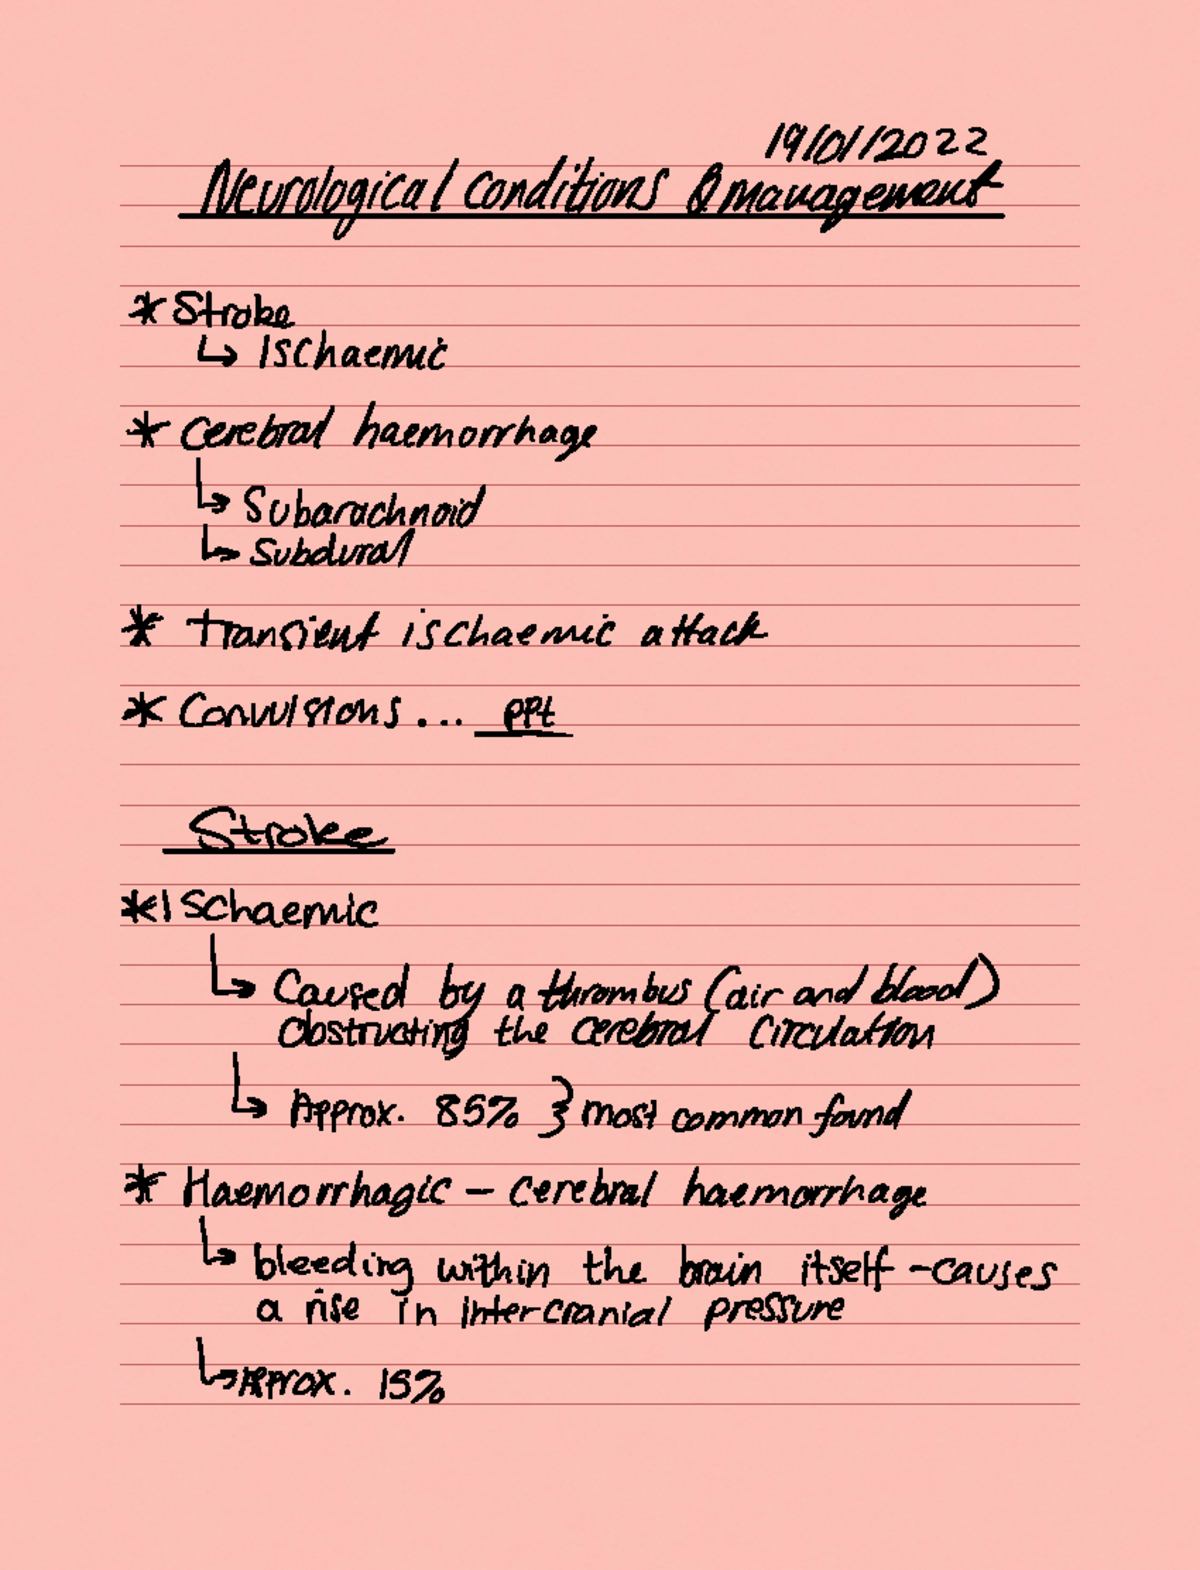 19/01/2022
Neurological conditions & management
* Stroke
↳ Ischaemic
* Cerebral haemorrhage
↳ Subarachnoid
↳ Subdural
* Transient ischaemic attack
* Convulsions... ppt
Stroke
* Ischaemic
↳ Caused by a thrombus (air and blood)
obstructing the cerebral circulation
↳ Approx. 85% } most common found
* Haemorrhagic – cerebral haemorrhage
↳ bleeding within the brain itself - causes
a rise in intercranial pressure
↳ Approx. 15%